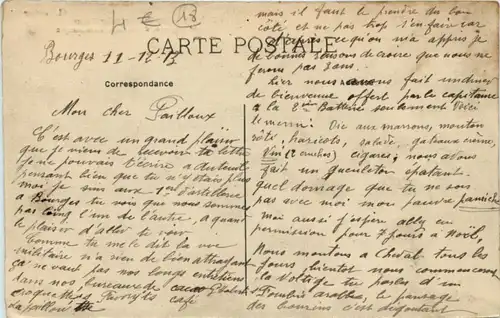 4 € 18
CARTE POSTALE
Correspondance
Bourges 11-12-13
Mon cher Pailloux
C'est avec un grand plaisir
que je viens de recevoir ta lettre
je ne pouvais t'écrire à
pensant bien que tu n'y étais plus
moi je suis aux 1er d'artillerie
à Bourges tu vois que nous sommes
pas loing l'un de l'autre, a quant
le plaisir d'aller te voir
Comme tu me le dit la vie
militaire n'a rien de bien attrayant
ça ne vaut pas nos longs entretiens
dans nos bureaux de cacao
croquettes Favoris café
mais il faut le prendre du bon
coté et ne pas trop s'en faire car
d'après ce qu'on m'a appris je
de bonnes raisons de croire que nous ne
ferons pas 3 ans.
hier nous avons fait un diner
de bienvenue offert par le capitaine
a la 2ème Batterie seulement Voici
le menu: Oie aux marrons, mouton
rôti, haricots, salade, gateaux crème,
Vin cigares; nous avons
fait un gueuleton épatant.
quel dommage que tu ne sois
pas avec moi mon pauvre
moi aussi j'espère aller en
permission pour 7 jours à Noël.
Nous montons a cheval tous les
jours bientôt nous commencerons
la Voltige tu parles d'un
le pansage
des bourins c'est dégoutant